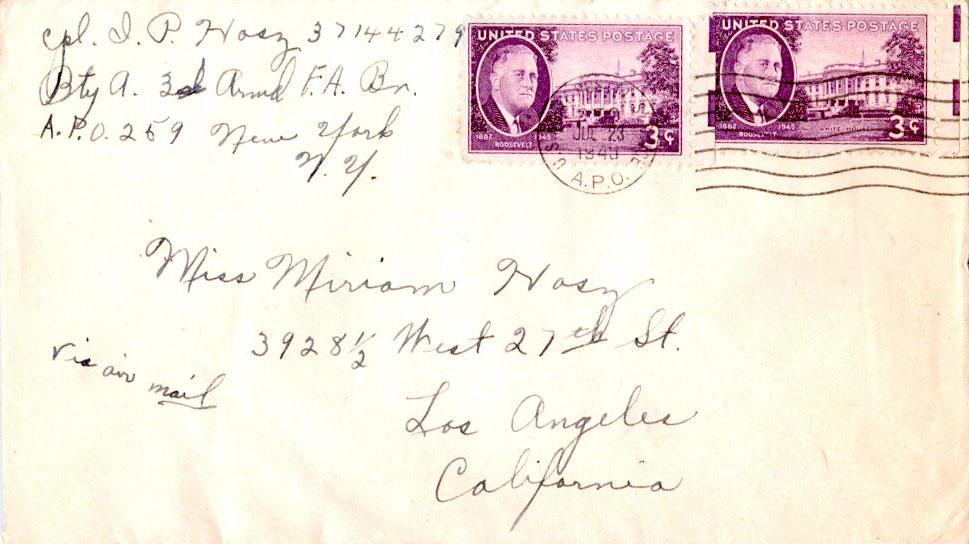 Cpl. I. P. Hosz 37144279
Bty A. 3rd Armd F. A. Bn.
A.P.O. 259 New York
N. Y.
UNITED STATES POSTAGE
1882 1945
ROOSEVELT
3¢
UNITED STATES POSTAGE
1882 1945
ROOSEVELT
WHITE HOUSE
3¢
JUL 23
A.P.O.
Miss Miriam Hosz
3928½ West 27th St.
Via air mail
Los Angeles
California